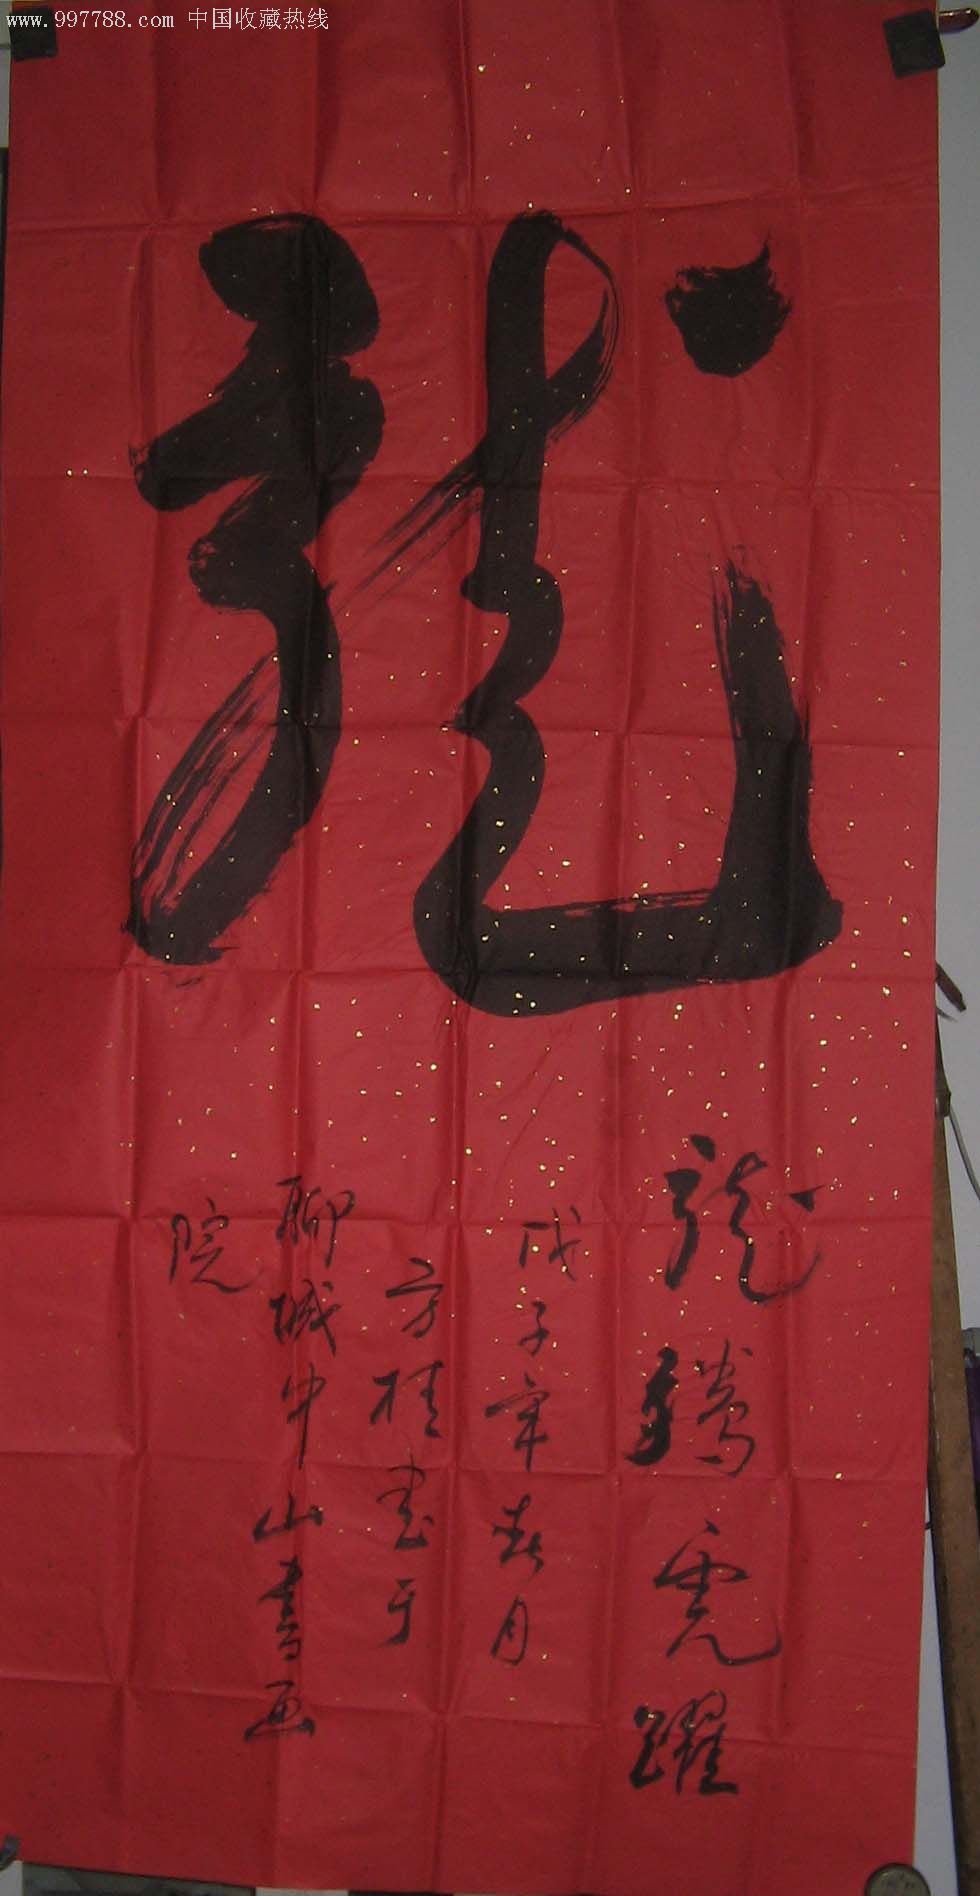 www.997788.com 中国收藏热线
龙
龙腾虎跃
戊子年春月
方桂书于
聊城中山書画
院